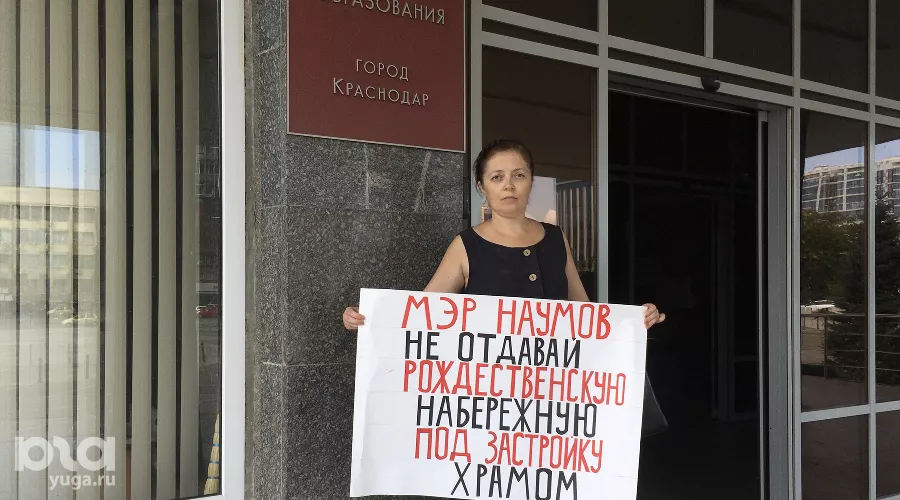 ОБРАЗОВАНИЯ
ГОРОД
КРАСНОДАР
МЭР НАУМОВ
НЕ ОТДАВАЙ
РОЖДЕСТВЕНСКУЮ
НАБЕРЕЖНУЮ
ПОД ЗАСТРОЙКУ
ХРАМОМ
юга
yuga.ru